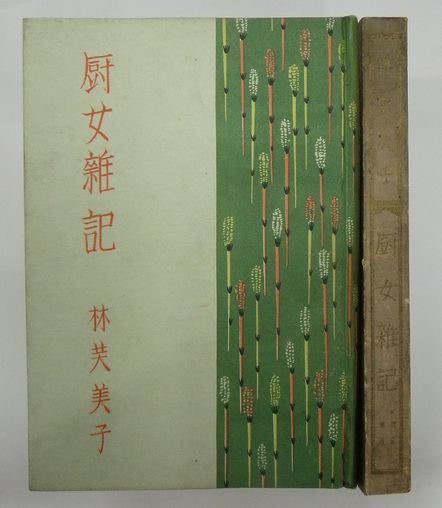 厨女雑記
林芙美子
厨女雑記